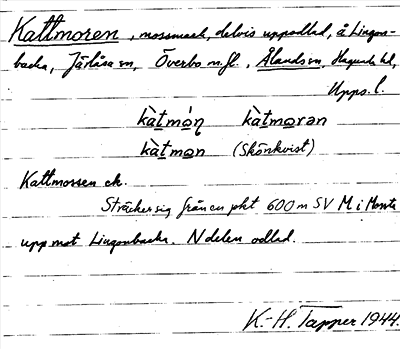 Kattmoren, mossmark, delvis uppodlad, å Lingon-
backa, Järlåsa sn, Överbo m.fl., Ålands sn, Hagunda hd,
Upps. l.
kàtmón kàtmoran
kàtmon (Skönkvist)
Kattmossen ek.
Sträcker sig från en pkt 600 m SV M i Monte
upp mot Lingonbacka. N delen odlad.
K.-H. Tapper 1944.